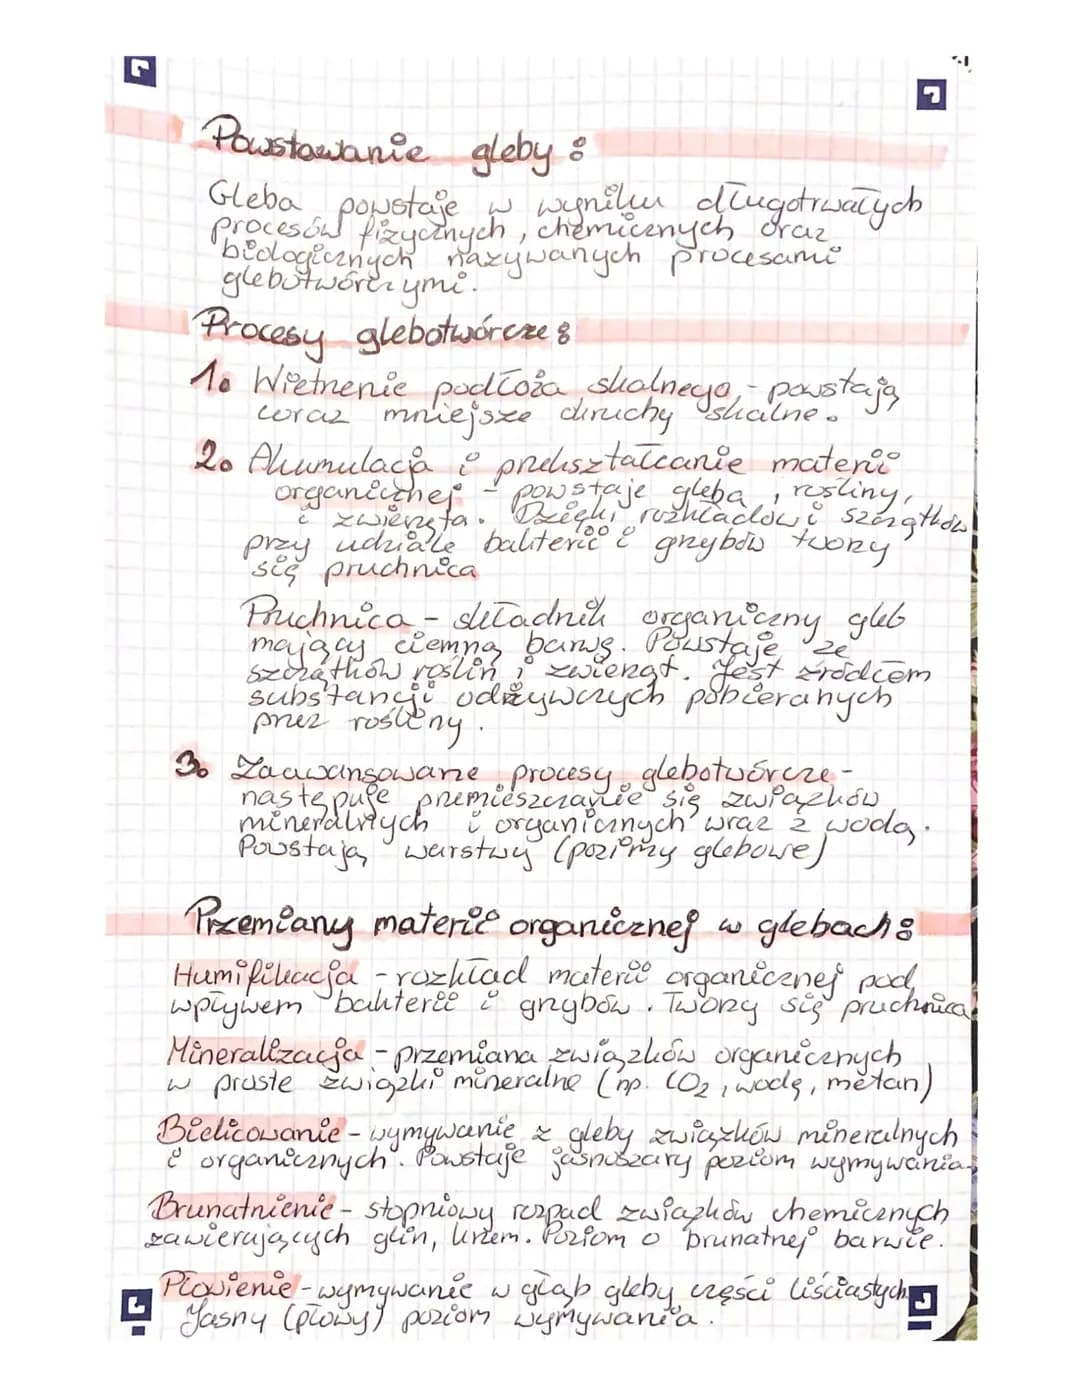 Powstawanie gleby:
Gleba powstaje w wyniku długotrwałych
procesów fizycznych, chemicznych oraz
biologicznych nazywanych procesami
glebotwórczymi.
Procesy glebotwórcze:
1. Wietrzenie podłoża skalnego - powstają
coraz mniejsze okruchy skalne.
2. Akumulacja i przekształcanie materii
organicznej - powstaje gleba, rośliny,
i zwierzęta. Dzięki rozkładowi szczątków
przy udziale bakterii i grzybów tworzy
się pruchnica
Pruchnica - składnik organiczny gleb
mający ciemną barwę. Powstaje ze
szczątków roślin i zwierząt. Jest źródłem
substancji odżywczych pobieranych
przez rośliny.
3. Zaawansowane procesy glebotwórcze -
następuje przemieszczanie się związków
mineralnych i organicznych wraz z wodą.
Powstają warstwy (poziomy glebowe)
Przemiany materii organicznej w glebach:
Humifikacja - rozkład materii organicznej pod
wpływem bakterii i grzybów. Tworzy się pruchnica
Mineralizacja - przemiana związków organicznych
w proste związki mineralne (np. CO2, wodę, metan)
Bielicowanie - wymywanie z gleby związków mineralnych
i organicznych. Powstaje jasnoszary poziom wymywania.
Brunatnienie - stopniowy rozpad związków chemicznych
zawierających glin, krzem. Poziom o brunatnej barwie.
Płowienie - wymywanie w głąb gleby części liściastych
Jasny (płowy) poziom wymywania.